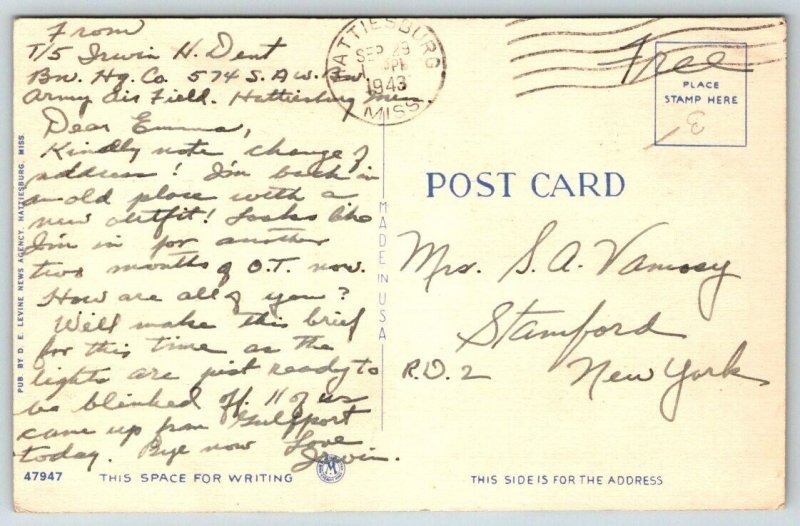 From
T/5 Irwin H. Dent
Bn. Hq. Co. 574 S. A. W. Bn.
Army Air Field. Hattiesburg Miss.
Dear Emma,
Kindly note change of
address! I'm back in
an old place with a
new outfit! Looks like
I'm in for another
two months of O.T. now.
How are all of you?
Will make this brief
for this time as the
lights are just ready to
be blinked off. 11 of us
came up from Gulfport
today. Bye now Love
Irwin.
HATTIESBURG
SEP 29
PM
1943
MISS.
Free
PLACE
STAMP HERE
POST CARD
Mrs. S. A. Vamosy
Stamford
R.D. 2 New York
MADE IN USA
PUB. BY D. E. LEVINE NEWS AGENCY, HATTIESBURG, MISS.
47947
THIS SPACE FOR WRITING
THIS SIDE IS FOR THE ADDRESS